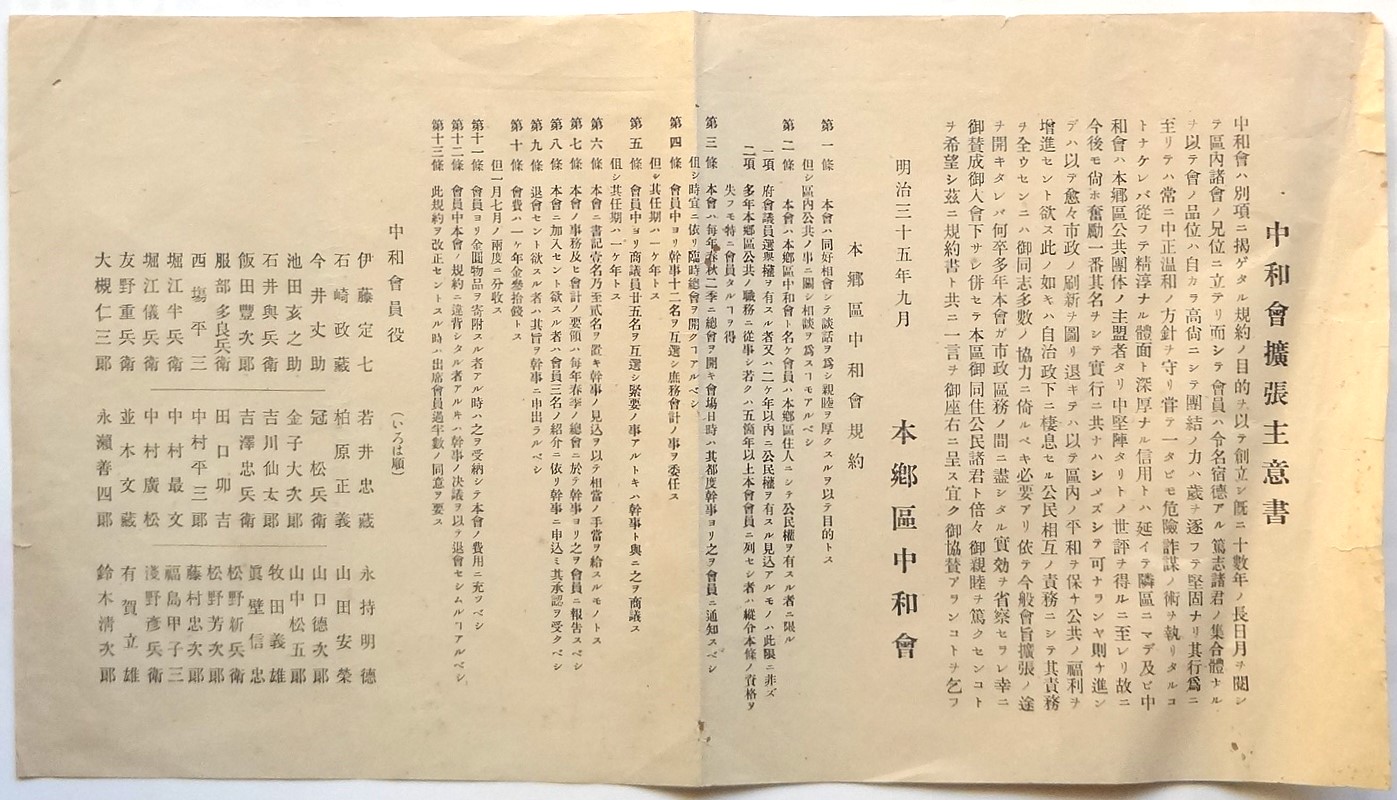 中和會擴張主意書
中和會ハ別項ニ揭ゲタル規約ノ目的ヲ以テ創立シ既ニ十數年ノ長日月ヲ閱シ
テ區內諸會ノ兄位ニ立テリ而シテ會員ハ令名宿德アル篤志諸君ノ集合體ナル
ヲ以テ會ノ品位ハ自カラ高尙ニシテ團結ノ力ハ歲ヲ逐フテ堅固ナリ其行爲ニ
至リテハ常ニ中正温和ノ方針ヲ守リ嘗テ一タビモ危險詐謀ノ術ヲ執リタルコ
トナケレバ從フテ精淳ナル體面ト深厚ナル信用トハ延イテ隣區ニマデ及ビ中
和會ハ本鄉區公共團体ノ主盟者タリ中堅陣タリトノ世評ヲ得ルニ至レリ故ニ
今後モ尙ホ奮勵一番其名ヲシテ實行ニ共ナハシメズシテ可ナランヤ則チ進ン
デハ以テ愈々市政ノ刷新ヲ圖リ退キテハ以テ區內ノ平和ヲ保チ公共ノ福利ヲ
增進セント欲ス此ノ如キハ自治政下ニ棲息セル公民相互ノ責務ニシテ其責務
ヲ全ウセンニハ御同志多數ノ協力ニ倚ルベキ必要アリ依テ今般會旨擴張ノ途
ヲ開キタレバ何卒多年本會ガ市政區務ノ間ニ盡シタル實効ヲ省察セラレ幸ニ
御賛成御入會下サレ併セテ本區御同住公民諸君ト倍々御親睦ヲ篤クセンコト
ヲ希望シ茲ニ規約書ト共ニ一言ヲ御座右ニ呈ス宜ク御協賛アランコトヲ乞フ
明治三十五年九月
本鄉區中和會
本鄉區中和會規約
第一條 本會ハ同好相會シテ談話ヲ爲シ親睦ヲ厚クスルヲ以テ目的トス
但シ區內公共ノ事ニ關シ相談ヲ爲スヿモアルベシ
第二條 本會ハ本鄉區中和會ト名ケ會員ハ本鄉區住人ニシテ公民權ヲ有スル者ニ限ル
一項 府會議員選擧權ヲ有スル者又ハ二ケ年以內ニ公民權ヲ有スル見込アルモノハ此限ニ非ズ
二項 多年本鄉區公共ノ職務ニ從事シ若クハ五箇年以上本會會員ニ列セシ者ハ縱令本條ノ資格ヲ
失フモ特ニ會員タルヿヲ得
第三條 本會ハ每年春秋二季ニ總會ヲ開キ會場日時ハ其都度幹事ヨリ之ヲ會員ニ通知スベシ
但シ時宜ニ依リ臨時總會ヲ開クヿアルベシ
第四條 會員中ヨリ幹事十二名ヲ互選シ庶務會計ノ事ヲ委任ス
但シ其任期ハ一ケ年トス
第五條 會員中ヨリ商議員廿五名ヲ互選シ緊要ノ事アルトキハ幹事ト與ニ之ヲ商議ス
但シ其任期ハ一ケ年トス
第六條 本會ニ書記壹名乃至貳名ヲ置キ幹事ノ見込ヲ以テ相當ノ手當ヲ給スルモノトス
第七條 本會ノ事務及ヒ會計ノ要領ハ每年春季ノ總會ニ於テ幹事ヨリ之ヲ會員ニ報告スベシ
第八條 本會ニ加入セント欲スル者ハ會員三名ノ紹介ニ依リ幹事ニ申込ミ其承認ヲ受クベシ
第九條 退會セント欲スル者ハ其旨ヲ幹事ニ申出ラルベシ
第十條 會費ハ一ケ年金叄拾錢トス
但一月七月ノ兩度ニ分收ス
第十一條 會員ヨリ金圓物品ヲ寄附スル者アル時ハ之ヲ受納シテ本會ノ費用ニ充ツベシ
第十二條 會員中本會ノ規約ニ違背シタル者アルキハ幹事ノ決議ヲ以テ退會セシムルヿアルベシ
第十三條 此規約ヲ改正セントスル時ハ出席會員過半數ノ同意ヲ要ス
中和會員役 (いろは順)
伊藤定七 若井忠藏 永持明德
石崎政藏 柏原正義 山田安榮
今井丈助 冠松兵衛 山口德次郞
池田亥之助 金子大次郞 山中松五郞
石井與兵衛 吉川仙太郞 牧田義雄
飯田豐次郞 吉澤忠兵衛 眞壁信忠
服部多良兵衛 田口卯吉 松野新兵衛
西塲平三 中村平三郞 松野芳次郞
堀江半兵衛 中村最文 藤村忠次郞
堀江儀兵衛 中村廣松 福島甲子三
友野重兵衛 並木文藏 淺野彥兵衛
大槻仁三郞 永瀨善四郞 有賀立雄
鈴木淸次郞